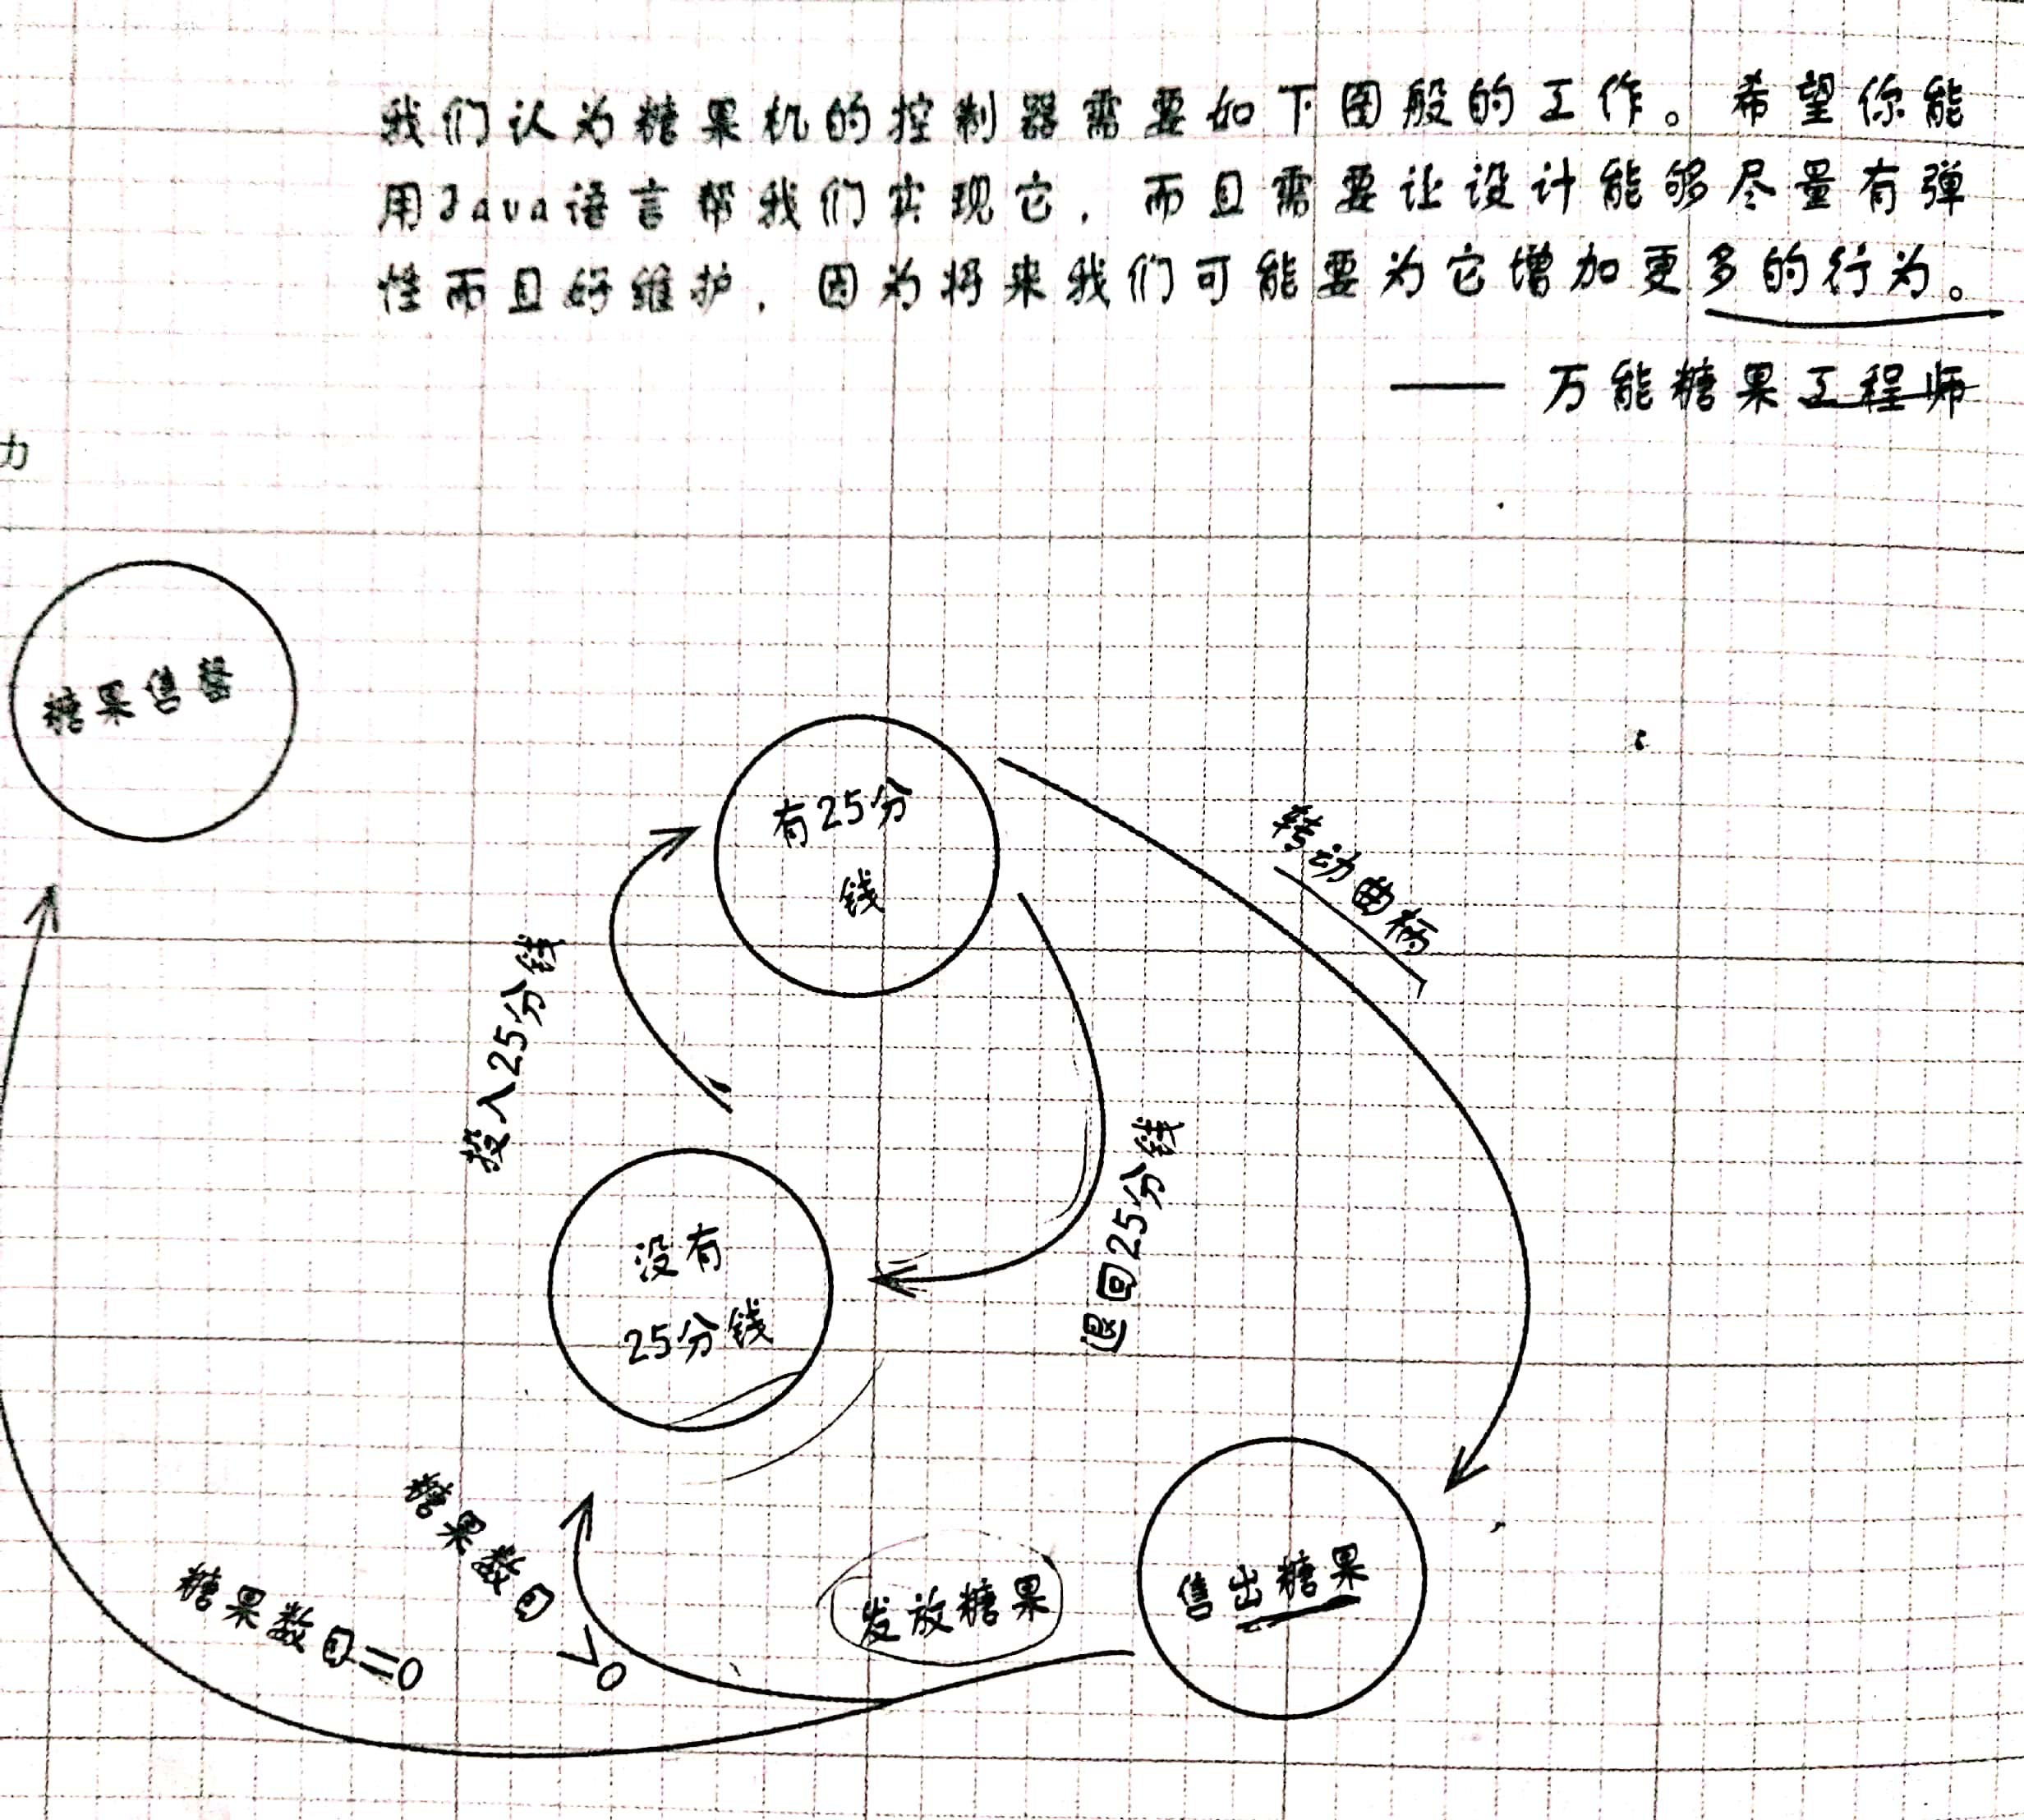 我们认为糖果机的控制器需要如下图般的工作。希望你能
用Java语言帮我们实现它，而且需要让设计能够尽量有弹
性而且好维护，因为将来我们可能要为它增加更多的行为。
—— 万能糖果工程师
力
糖果售罄
有25分
钱
转动曲柄
投入25分钱
退回25分钱
没有
25分钱
糖果数目>0
糖果数目=0
发放糖果
售出糖果